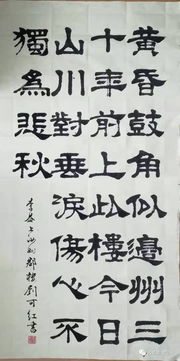 黄昏鼓角似邊州三
十年前上此樓今日
山川對垂淚傷心不
獨為悲秋
李益上汝州郡樓劉可紅書